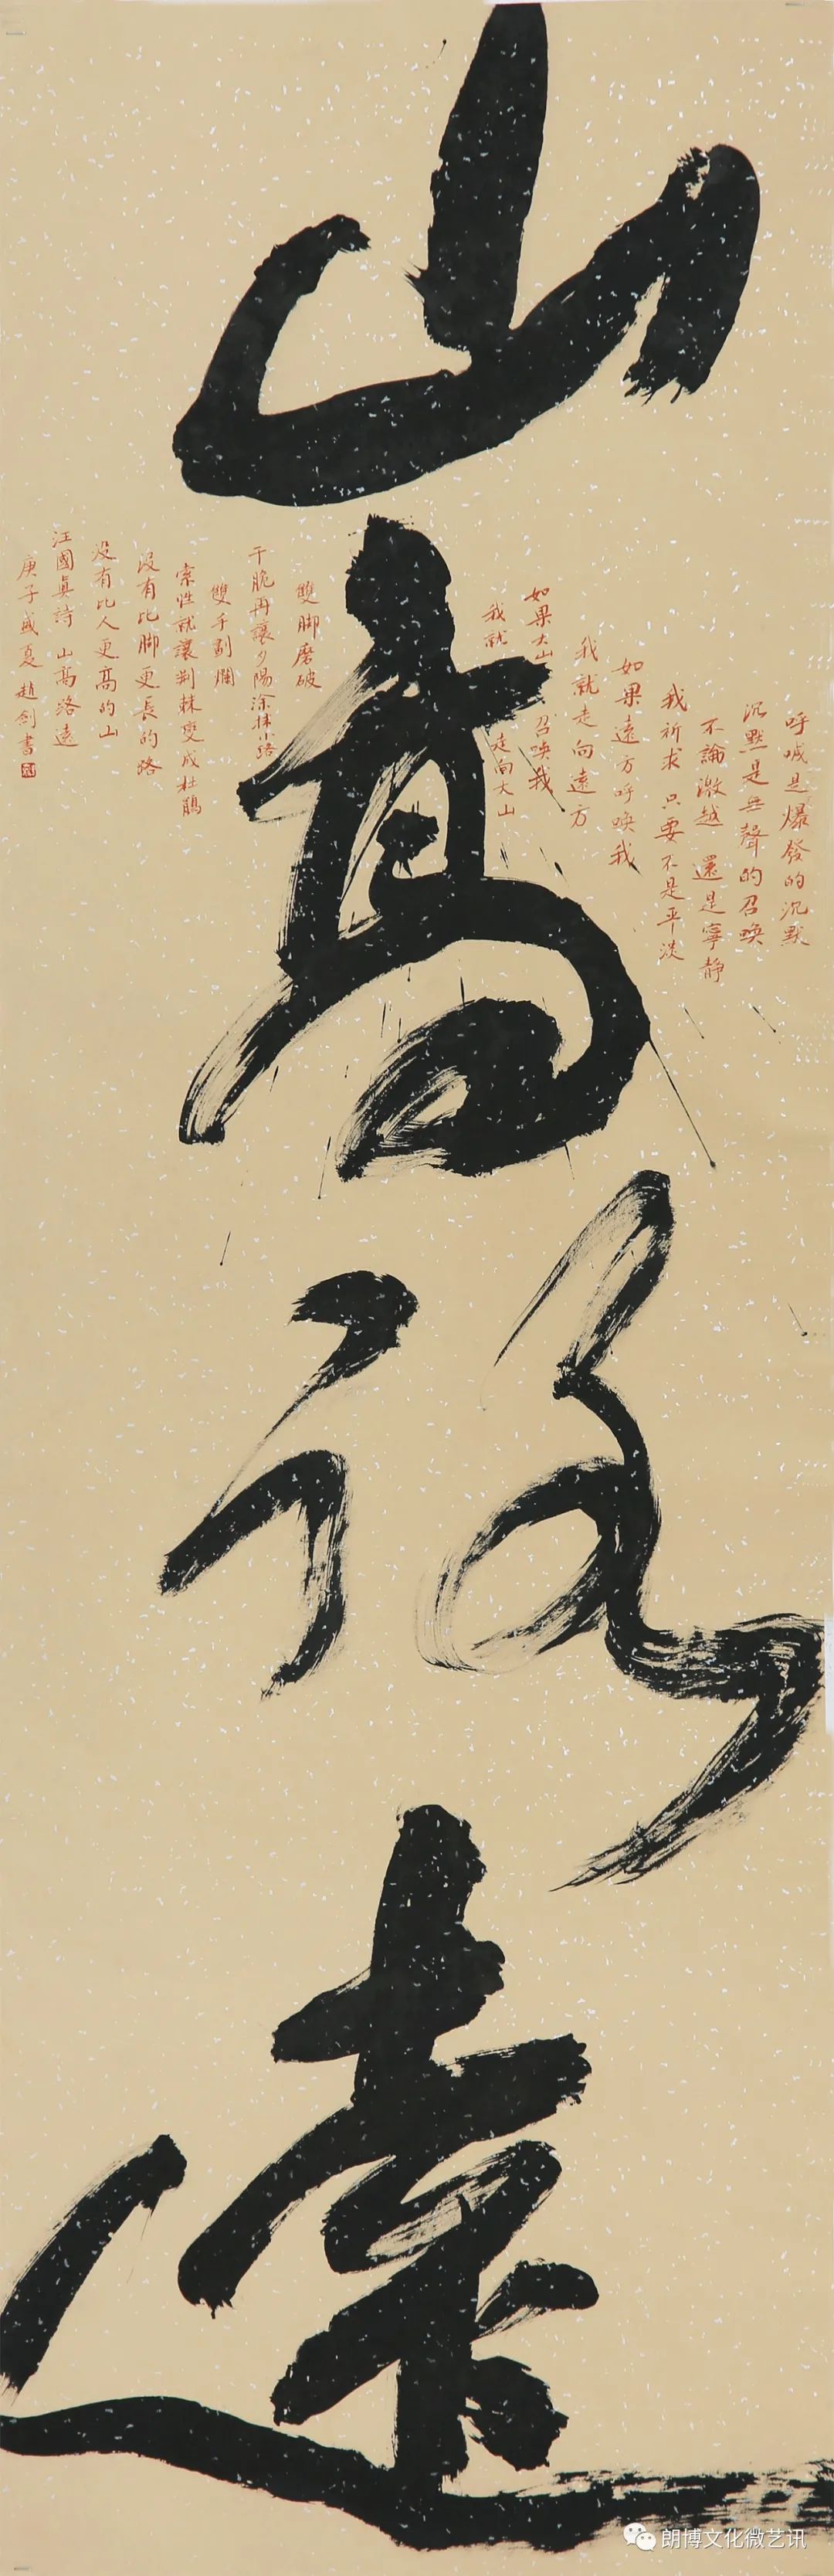 山高路遠
呼喊是爆發的沉默
沉默是無聲的召喚
不論激越 還是寧靜
我祈求 只要不是平淡
如果遠方呼喚我
我就走向遠方
如果大山 召喚我
我就 走向大山
雙脚磨破
干脆再讓夕陽涂抹小路
雙手劃爛
索性就讓荆棘變成杜鵑
没有比脚更長的路
没有比人更高的山
汪國真詩 山高路遠
庚子盛夏 趙劍書
朗博文化微艺讯